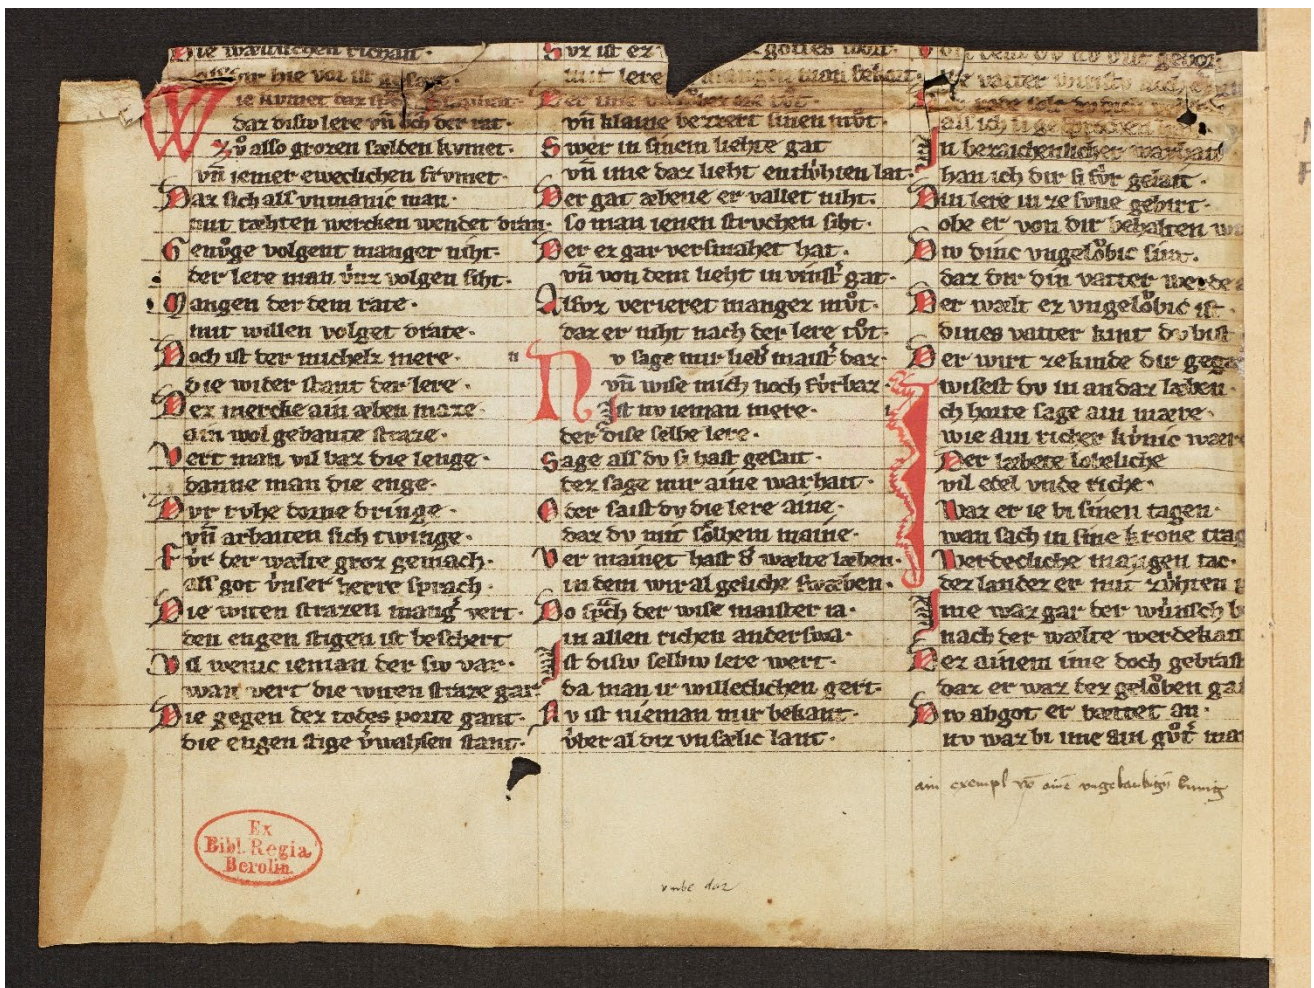 Die wætlichen richait·
hie vor ist gesait·
Wie kvmet daz
daz disiv lere vn̄ ǒch der rat·
Zv̊ also grozen sælden kvmet·
vn̄ iemer eweclichen frvmet·
Daz sich alſ vnmanic man·
mit ræhten wercken wendet dran·
Genv̊ge volgent manger niht·
der lere man v̓nz volgen siht·
Mangen der dem rate·
mit willen volget drate·
Doch ist der michelz mere·
die wider stant der lere·
Dez mercke ain æben maze·
ain wol gebante straze·
Vert man vil baz die lenge·
danne man die enge·
Dvr rvhe dorne dringe·
vn̄ arbaiten sich twinge·
Fv̓r der wælte groz gemach·
alſ got v̓nser herre sprach·
Die witen strazen mang̓ vert·
den engen stigen ist beschert
Vil wenic ieman der siv var·
wan vert die witen straze gar·
Die gegen dez todes porte gant·
die engen stige v̓wahsen stant·
Svz ist ez gottes wort·
mit lere mangen man bekort·
Der ime
vn̄ klaine bezzert sinen mv̊t·
Swer in sinem liehte gat
vn̄ ime daz lieht entlv̓hten lat·
Der gat æbene er vallet niht·
so man ienen strvchen siht·
Der ez gar versmahet hat·
vn̄ von dem lieht in vinst̓ gat·
Alsvz verieret mangez mv̊t·
daz er niht nach der lere tv̊t·
n Nv sage mir lieb̓ maist̓ daz·
vn̄ wise mich noch fv̓rbaz·
Ist nv ieman mere·
der dise selbe lere·
Sage alſ dv si hast gesait·
dez sage mir aine warhait·
Oder saist dv die lere aine·
daz dv mit sǒlhem maine·
Vermainet hast d̓ wælte læben·
in dem wir al geliche swæben·
Do sp̄ch der wise maister ia·
in allen richen anderswa·
Ist disiv selbiv lere wert·
da man ir willeclichen gert·
Nv ist nieman mir bekant·
v̓ber al diz vnsælic lant·
vatter
als ich
In bezaichenlicher warhait
han ich dir si fv̓r gelait·
Din lere in ze svne gebirt·
obe er von dir behalten
Div dinc vngelǒbic sint·
daz dir din vatter werde
Der wælt ez vngelǒbic ist·
dines vatter kint dv bist
Der wirt ze kinde dir
wisest dv in an daz læben·
Ich horte sage ain mære·
wie ain richer kv̓nic
Der læbete lobeliche
vil edel vnde riche·
Waz er ie bi sinen tagen·
wan sach in sine krone
Werdecliche mangen tac·
dez landez er mit zv̓hten
Ime waz gar der wunsch
nach der wælte
Dez ainem ime doch
daz er waz dez gelǒben
Div abgot er bættet an·
nv waz bi ime ain gv̊t
ain exempl vō aine vngelaubigē kunig
vmbe daz
Ex
Bibl. Regia
Berolin.